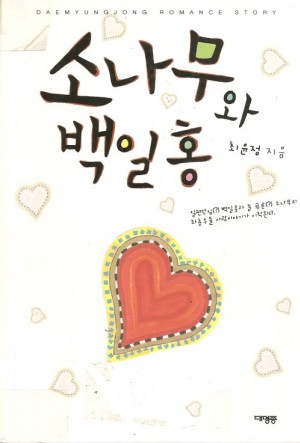 DAEMYUNGJONG ROMANCE STORY
소나무
와
백일홍
최윤정 지음
일편단심(?) 백일홍과 늘 푸른(?) 소나무의
좌충우돌 사랑이야기가 시작된다.
대명종